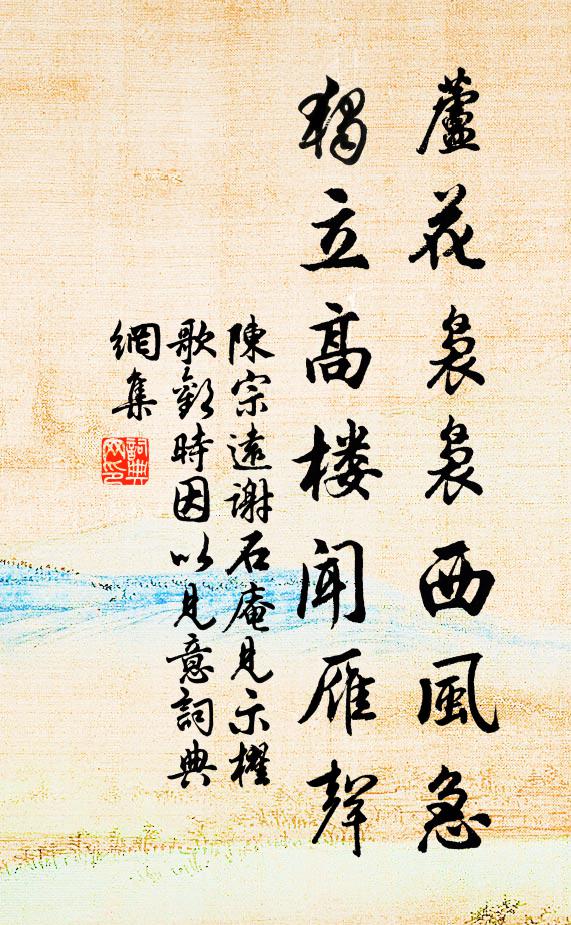 蘆花裊裊西風急
獨立高樓聞雁聲
陳宗遠謝石庵見示櫂
歌歎時因以見意詞典
網集
詞典
网印